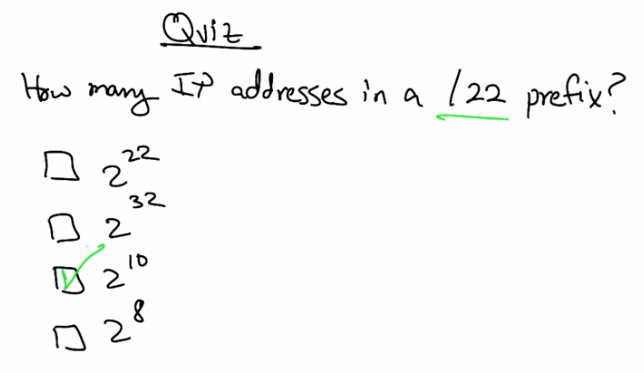 Quiz
How many IP addresses in a /22 prefix?
2^22
2^32
2^10
2^8